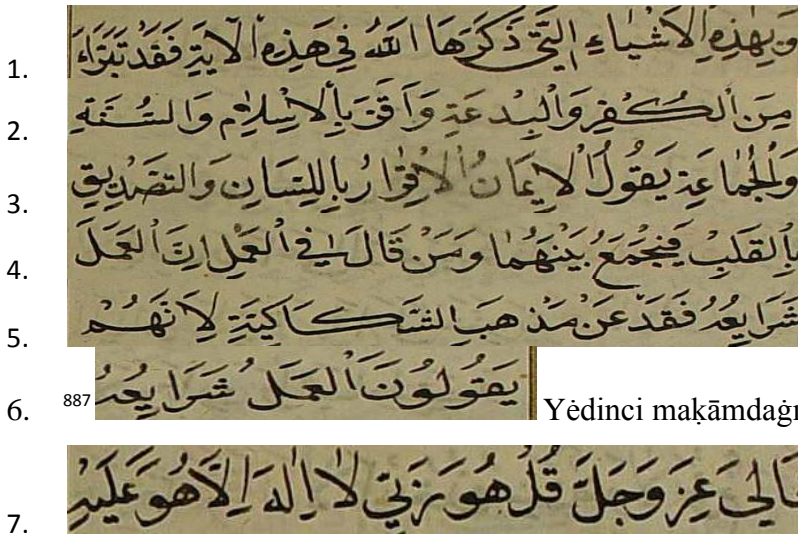 1. وَبِهٰذِهِ الْاَشْيَاءِ الَّتِي ذَكَرَهَا اللّٰهُ فِي هَذِهِ الْاٰيَةِ فَقَدْ تَبَرَّاءَ
2. مِنَ الْكُفْرِ وَالْبِدْعَةِ وَاَقَرَّ بِالْاِسْلَامِ وَالسُّنَّةِ
3. وَالْجَمَاعَةِ يَقُولُ الْاِيمَانُ الْاِقْرَارُ بِاللِّسَانِ وَالتَّصْدِيقِ
4. بِالْقَلْبِ فَيَجْمَعُ بَيْنَهُمَا وَمَنْ قَالَ فِي الْعَمَلِ اِنَّ الْعَمَلَ
5. شَرَايِعُهُ فَقَدْ عَنْ مَذْهَبِ الشَّكَّاكِيَّةِ لِاَنَّهُمْ
6. يَقُولُونَ الْعَمَلُ شَرَايِعُهُ 887 Yėdinci maḳāmdaġı
7. تَعَالٰى عَزَّ وَجَلَّ قُلْ هُوَ رَبِّي لَا اِلٰهَ اِلَّا هُوَ عَلَيْهِ